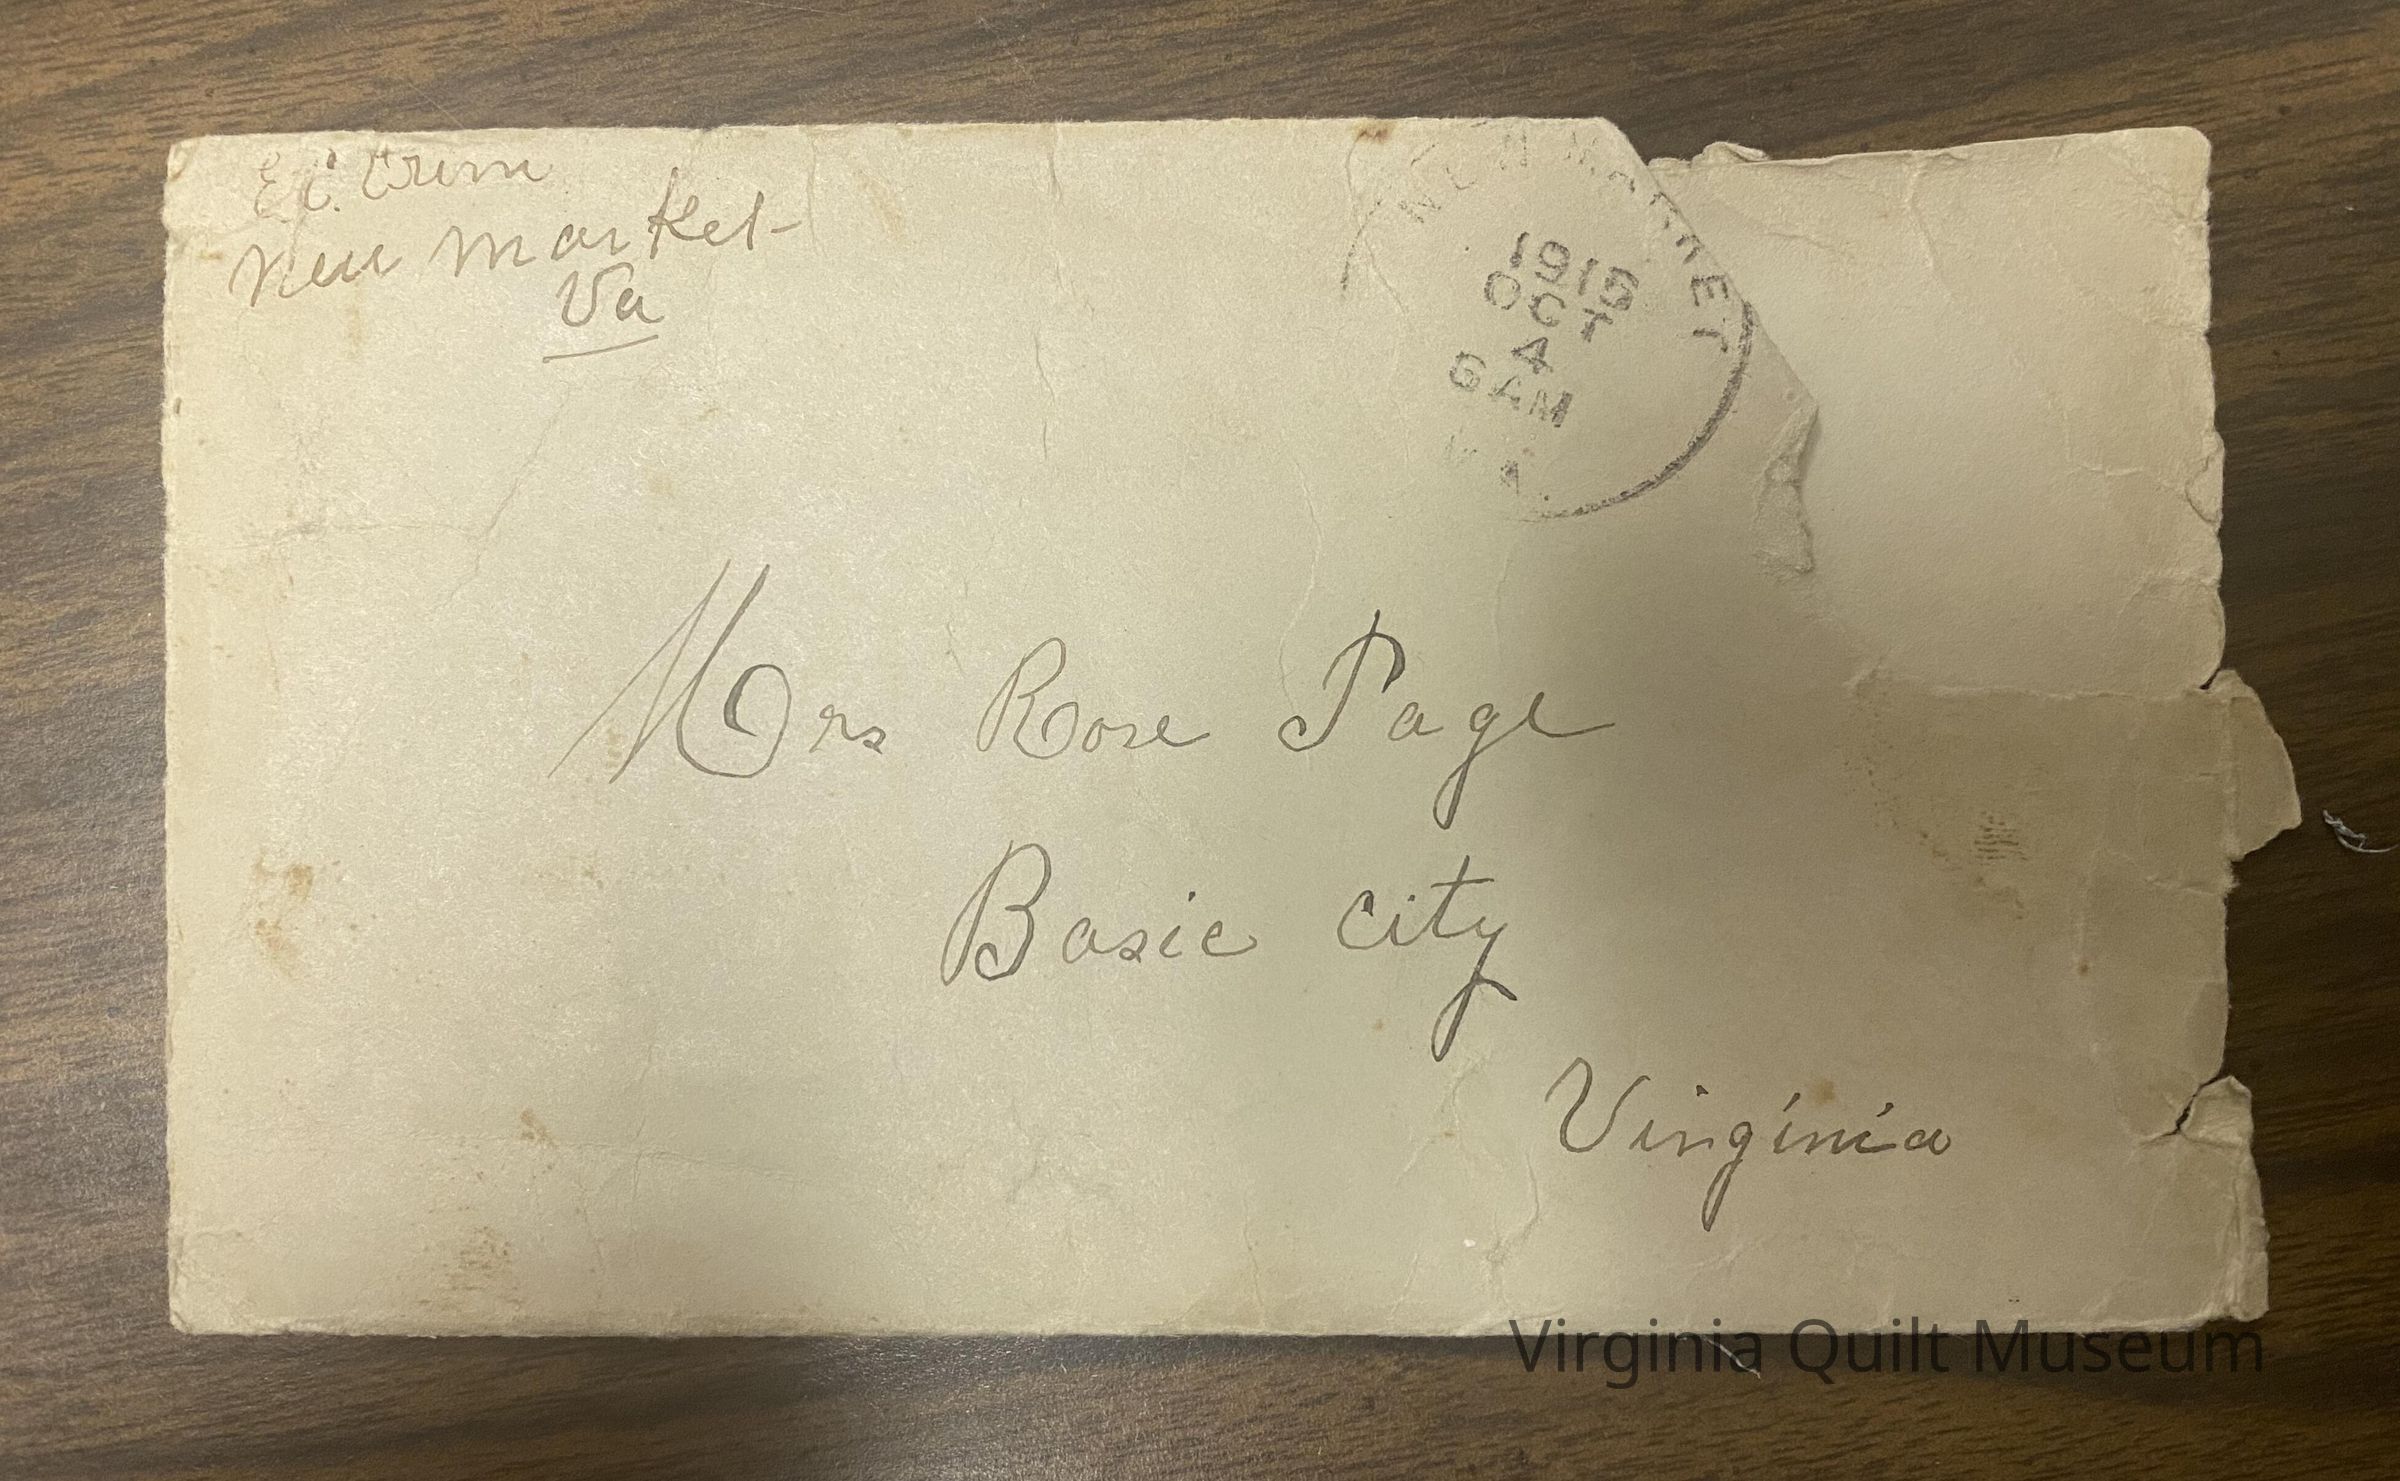 E. C. Crim
New Market
Va
NEW MARKET
1915
OCT
4
6 AM
VA.
Mrs Rose Page
Basic City
Virginia
Virginia Quilt Museum